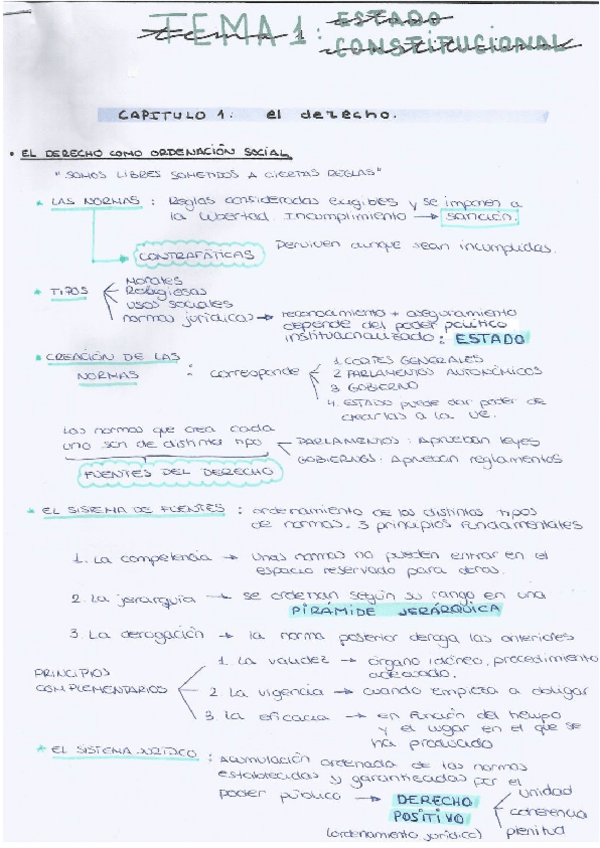 TEMA 1: ESTADO
CONSTITUCIONAL
CAPITULO 1: el derecho.
• EL DERECHO COMO ORDENACIÓN SOCIAL
"SOMOS LIBRES SOMETIDOS A CIERTAS REGLAS"
* LAS NORMAS : Reglas consideradas exigibles y se imponen a
la libertad. Incumplimiento → sanción.
CONTRAFÁTICAS
Perviven aunque sean incumplidas.
* TIPOS
Morales
Religiosas
usos sociales
normas jurídicas → reconocimiento + aseguramiento
depende del poder político
institucionalizado : ESTADO
* CREACIÓN DE LAS
NORMAS : corresponde
1. CORTES GENERALES
2 PARLAMENTOS AUTONÓMICOS
3 GOBIERNO
4. ESTADO puede dar poder de
crearlas a la UE.
Las normas que crea cada
uno son de distinto tipo
PARLAMENTOS : Aprueban leyes
GOBIERNOS. Aprueban reglamentos
FUENTES DEL DERECHO
* EL SISTEMA DE FUENTES : ordenamiento de los distintos tipos
de normas. 3 principios fundamentales
1. La competencia → Unas normas no pueden entrar en el
espacio reservado para otras.
2. La jerarquía → se ordenan según su rango en una
PIRÁMIDE JERÁRQUICA
3. La derogación → la norma posterior deroga las anteriores
PRINCIPIOS
COMPLEMENTARIOS
1. La validez → órgano idóneo, procedimiento
adecuado.
2 La vigencia → cuando empieza a obligar
3. La eficacia → en función del tiempo
y el lugar en el que se
ha producido
* EL SISTEMA JURÍDICO : Acumulación ordenada de las normas
establecidas y garantizadas por el
poder público → DERECHO
POSITIVO
(ordenamiento jurídico)
unidad
coherencia
plenitud